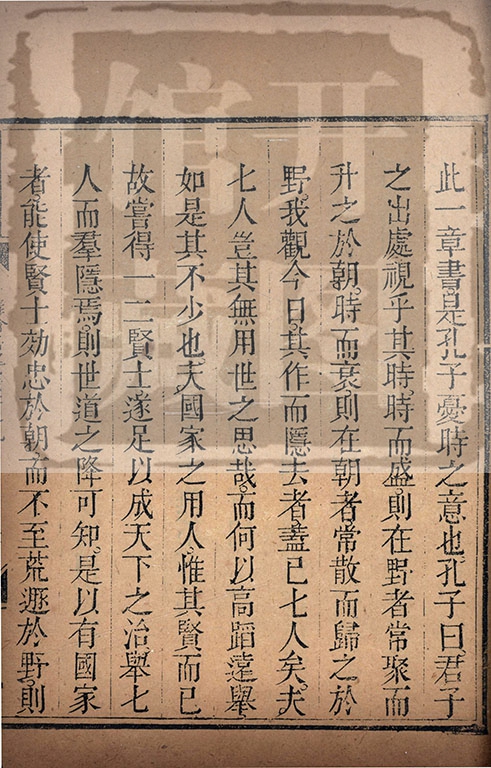 此一章書是孔子憂時之意也孔子曰君子
之出處視乎其時時而盛則在野者常聚而
升之於朝時而衰則在朝者常散而歸之於
野我觀今日其作而隱去者蓋已七人矣夫
七人豈其無用世之思哉而何以高蹈遠舉
如是其不少也夫國家之用人惟其賢而已
故嘗得一二賢士遂足以成天下之治舉七
人而羣隱焉則世道之降可知是以有國家
者能使賢士効忠於朝而不至荒遯於野則